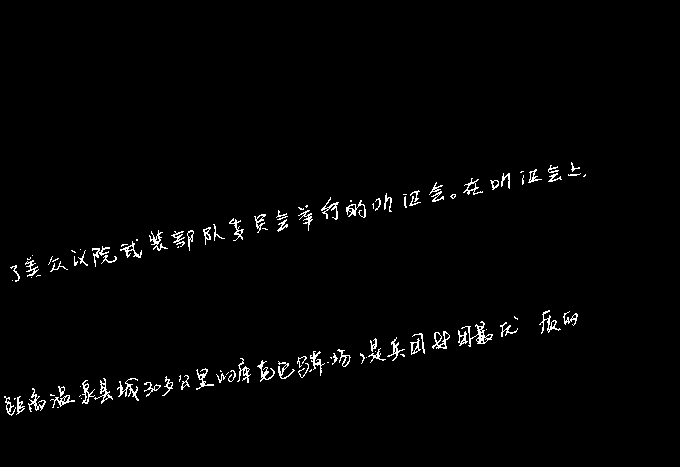 了美众议院武装部队委员会举行的听证会。在听证会上,
距离温泉县城30多公里的库克巴 场,是兵团 团最 质的